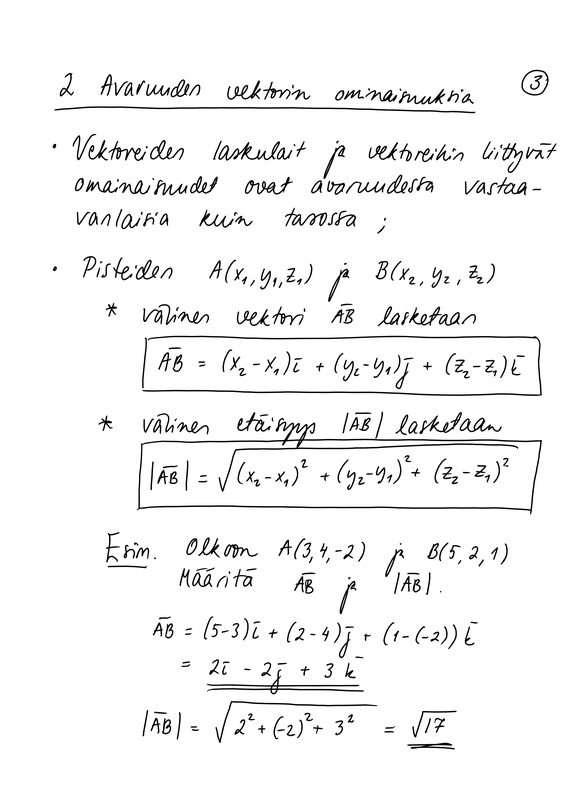 2 Avaruuden vektorin ominaisuuksia ③
• Vektoreiden laskulait ja vektoreihin liittyvät
omainaisuudet ovat avaruudessa vastaa-
vanlaisia kuin tasossa ;
• Pisteiden A(x₁, y₁, z₁) ja B(x₂, y₂, z₂)
* välinen vektori A̅B̅ lasketaan
A̅B̅ = (x₂ - x₁)i̅ + (y₂ - y₁)j̅ + (z₂ - z₁)k̅
* välinen etäisyys |A̅B̅| lasketaan
|A̅B̅| = √((x₂ - x₁)² + (y₂ - y₁)² + (z₂ - z₁)²)
Esim. Olkoon A(3, 4, -2) ja B(5, 2, 1)
Määritä A̅B̅ ja |A̅B̅|.
A̅B̅ = (5-3)i̅ + (2-4)j̅ + (1-(-2))k̅
= 2i̅ - 2j̅ + 3k̅
|A̅B̅| = √(2² + (-2)² + 3²) = √17